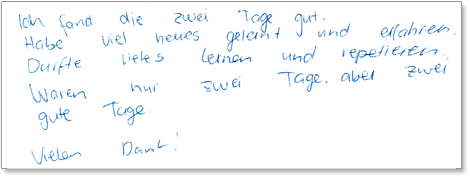 Ich fand die zwei Tage gut.
Habe viel neues gelernt und erfahren.
Durfte vieles lernen und repetieren.
Waren nur zwei Tage. aber zwei
gute Tage.
Vielen Dank!